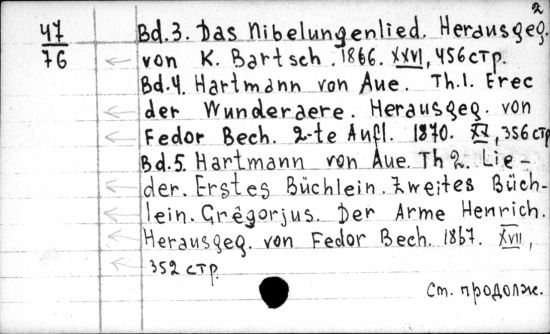 2
47 Bd.3. Das Nibelungenlied. Herausgeg.
76 von K. Bartsch. 1866. XXVI, 456 стр.
Bd.4. Hartmann von Aue. Th.1. Erec
der Wunderaere. Herausgeg. von
Fedor Bech. 2-te Aufl. 1870. XX, 356 стр
Bd.5. Hartmann von Aue. Th 2. Lie-
der. Erstes Büchlein. Zweites Büch-
lein. Grêgorjus. Der Arme Henrich.
Herausgeg. von Fedor Bech. 1867. XVII,
352 стр.
См. продолж.